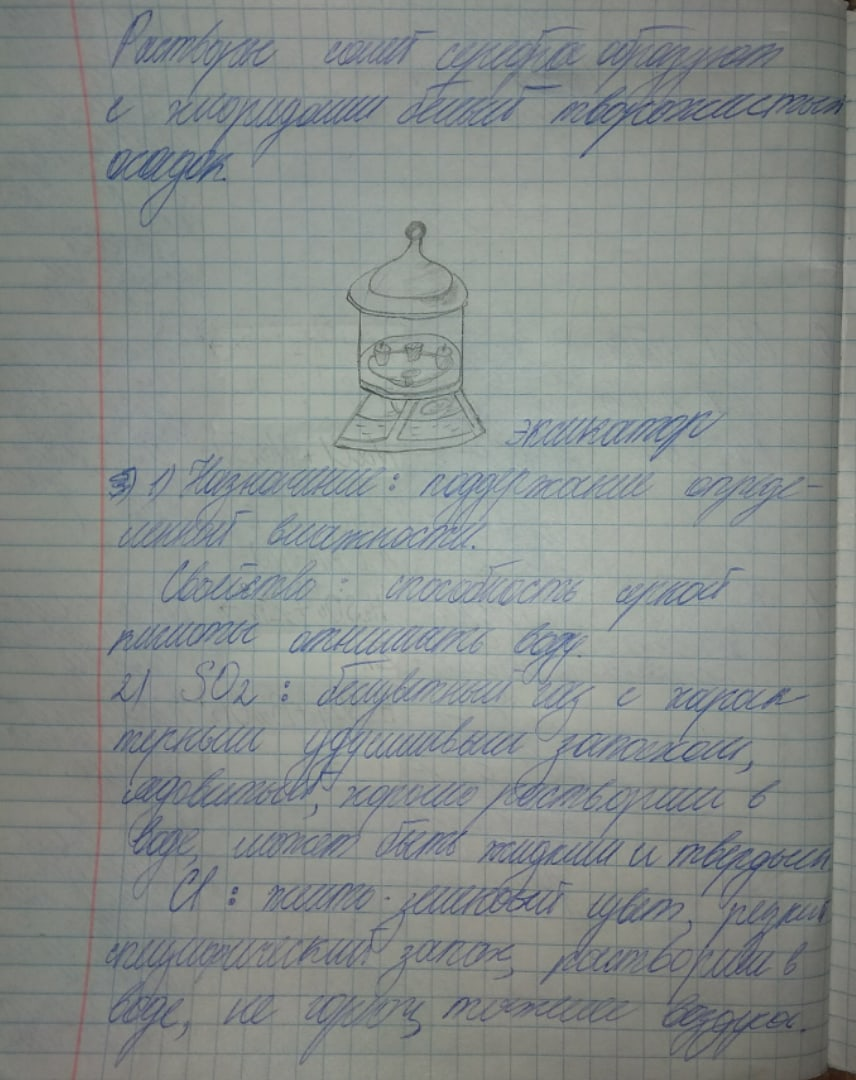 Растворы солей серебра образуют
с хлоридами белый творожистый
осадок.
эксикатор
3) 1) Назначение: поддержание опреде-
ленной влажности.
Свойство: способность серной
кислоты отнимать воду.
2) SO2: бесцветный газ с харак-
терным удушливым запахом,
ядовитый, хорошо растворим в
воде, может быть жидким и твердым
Cl: желто-зеленовый цвет, резкий
специфический запах, растворим в
воде, не горюч, тяжелее воздуха.